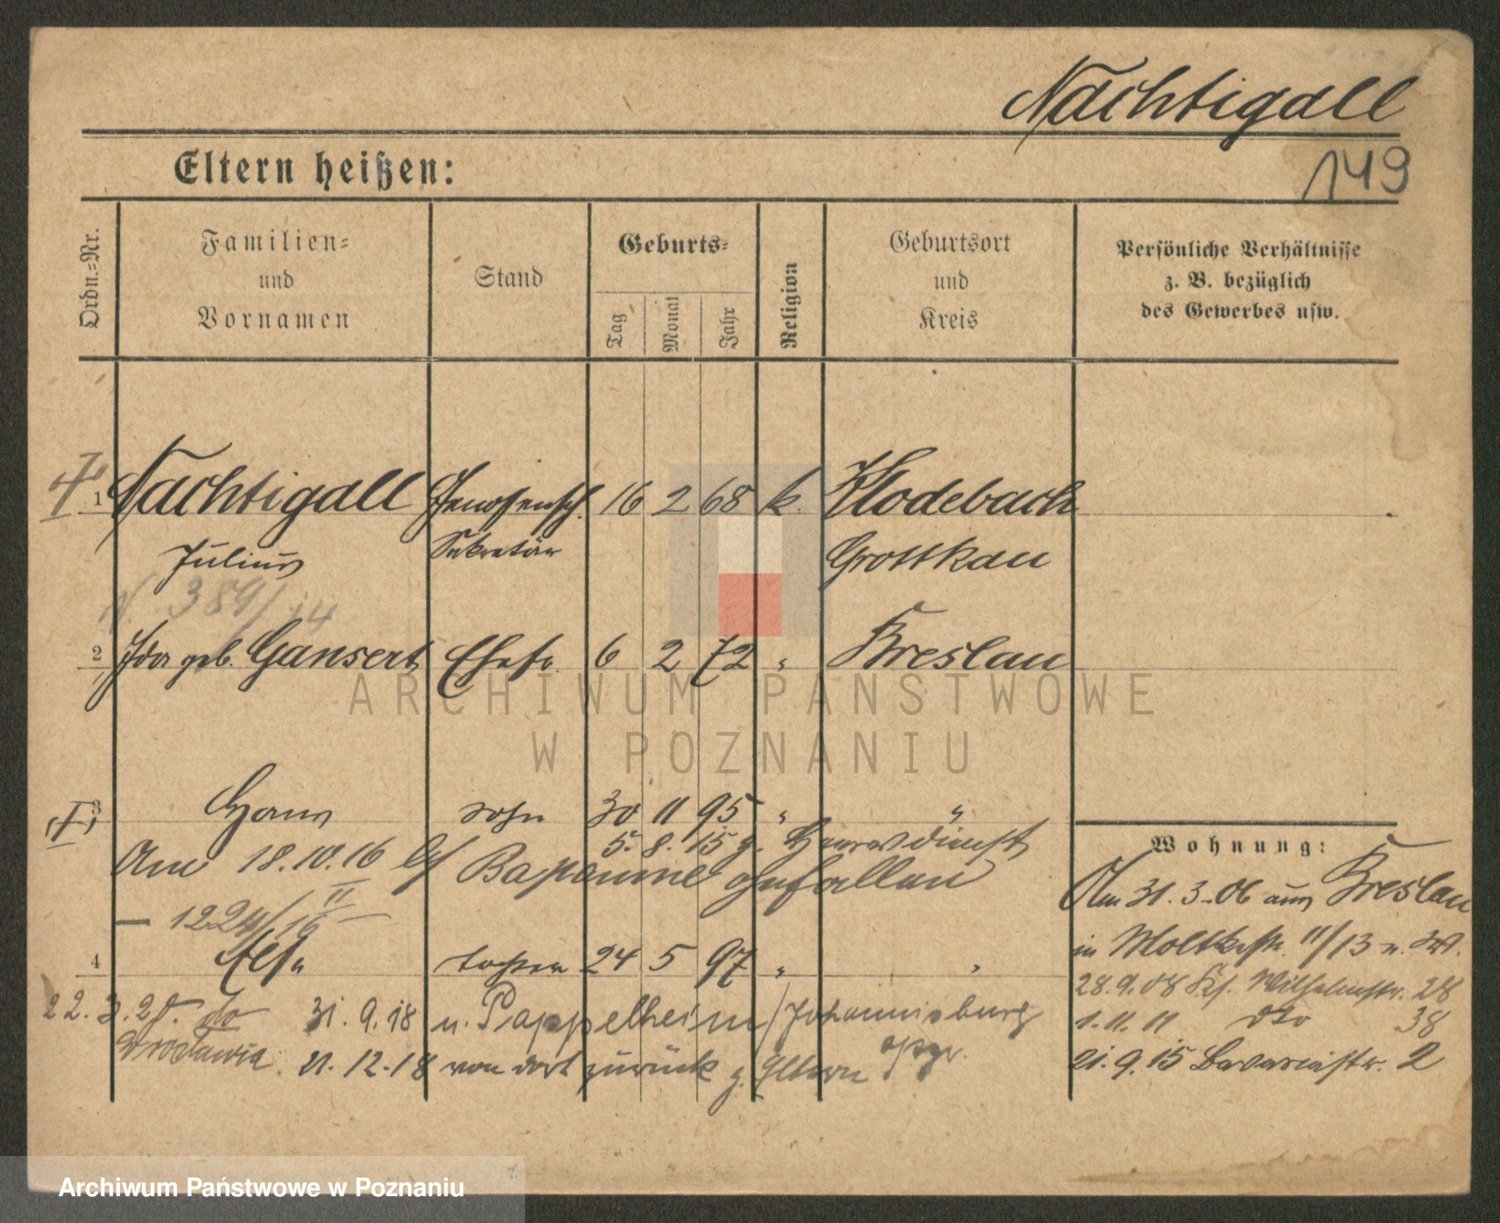 Nachtigall
149
Eltern heißen:
Ordn.=Nr.
Familien=
und
Vornamen
Stand
Geburts=
Tag
Monat
Jahr
Religion
Geburtsort
und
Kreis
Persönliche Verhältnisse
z. B. bezüglich
des Gewerbes usw.
1 Nachtigall Genossensch. 16 2 68 k. Klodebach
Julius Sekretär Grottkau
389/14
2 Ida geb. Gansert Ehefr. 6 2 72 " Breslau
ARCHIWUM PAŃSTWOWE
W POZNANIU
3 Hans Sohn 30 11 95 " "
5. 8. 15 z. Heeresdienst
Am 18.10.16 Bapaume gefallen
— 1224/16 II —
4 Else Tochter 24 5 97 " "
22.3.20. do 31.9.18 n. Pappelheim / Johannisburg
Wrocławia 21.12.18 von dort zurück z. Eltern Opr.
Wohnung:
Am 31.3.06 aus Breslau
in Moltkestr. 11/13 n. W.
28.9.08 Wilhelmstr. 28
1.11.11 dto 38
21.9.15 Bavariastr. 2
Archiwum Państwowe w Poznaniu